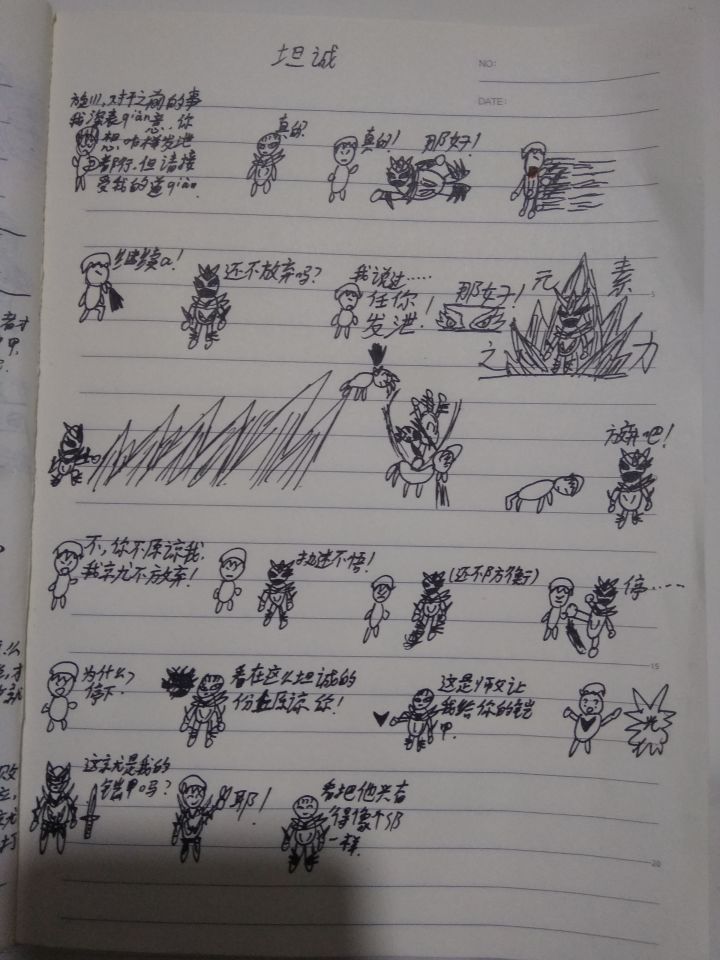 坦诚
NO:
DATE:
对于之前的事
我深表qiàn意.你
想咋样发泄
都行.但请接
受我的道qiàn.
真的?
真的!
那好!
继续a!
还不放弃吗?
我说过……
任你
发泄!
那好!
元 素
之 力
5
放弃吧!
不,你不原谅我,
我就不放弃!
执迷不悟!
(还不防衡)
停……
15
为什么
停下.
看在这么坦诚的
份上原谅你!
这是师父让
我给你的铠
甲.
光
这就是我的
铠甲吗?
耶!
看把他夹古
得像个SB
一样.
20